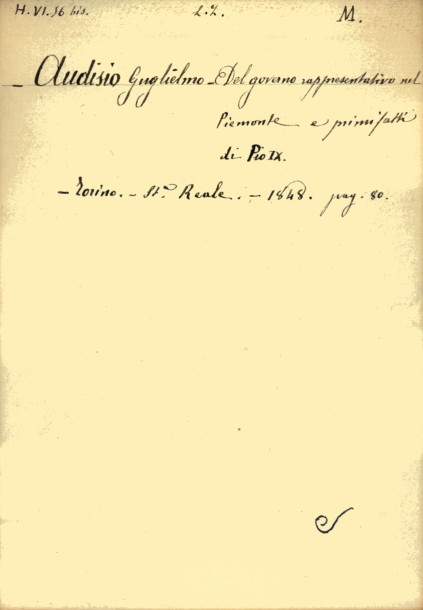 H. VI. 56 bis. 2.2. M.
— Audisio Guglielmo — Del governo rappresentativo nel
Piemonte e primi fatti
di Pio IX.
— Torino. — St.ª Reale. — 1848. pag. 80.